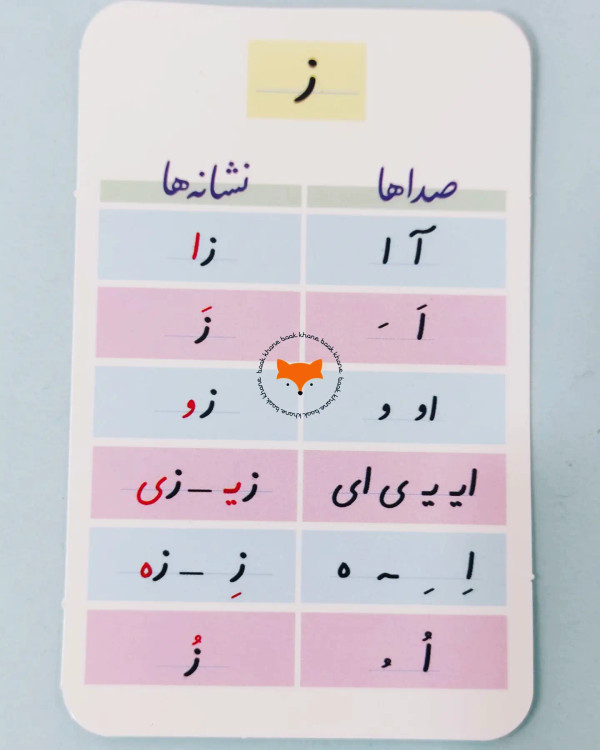 ز
صداها نشانه‌ها
آ ا زا
اَ ـَ زَ
او و زو
ایـ یـ ی ای زیـ ـ زی
اِ ـِ ـه ه زِ ـ زه
اُ ـُ زُ
book khane book khane book khane book khane